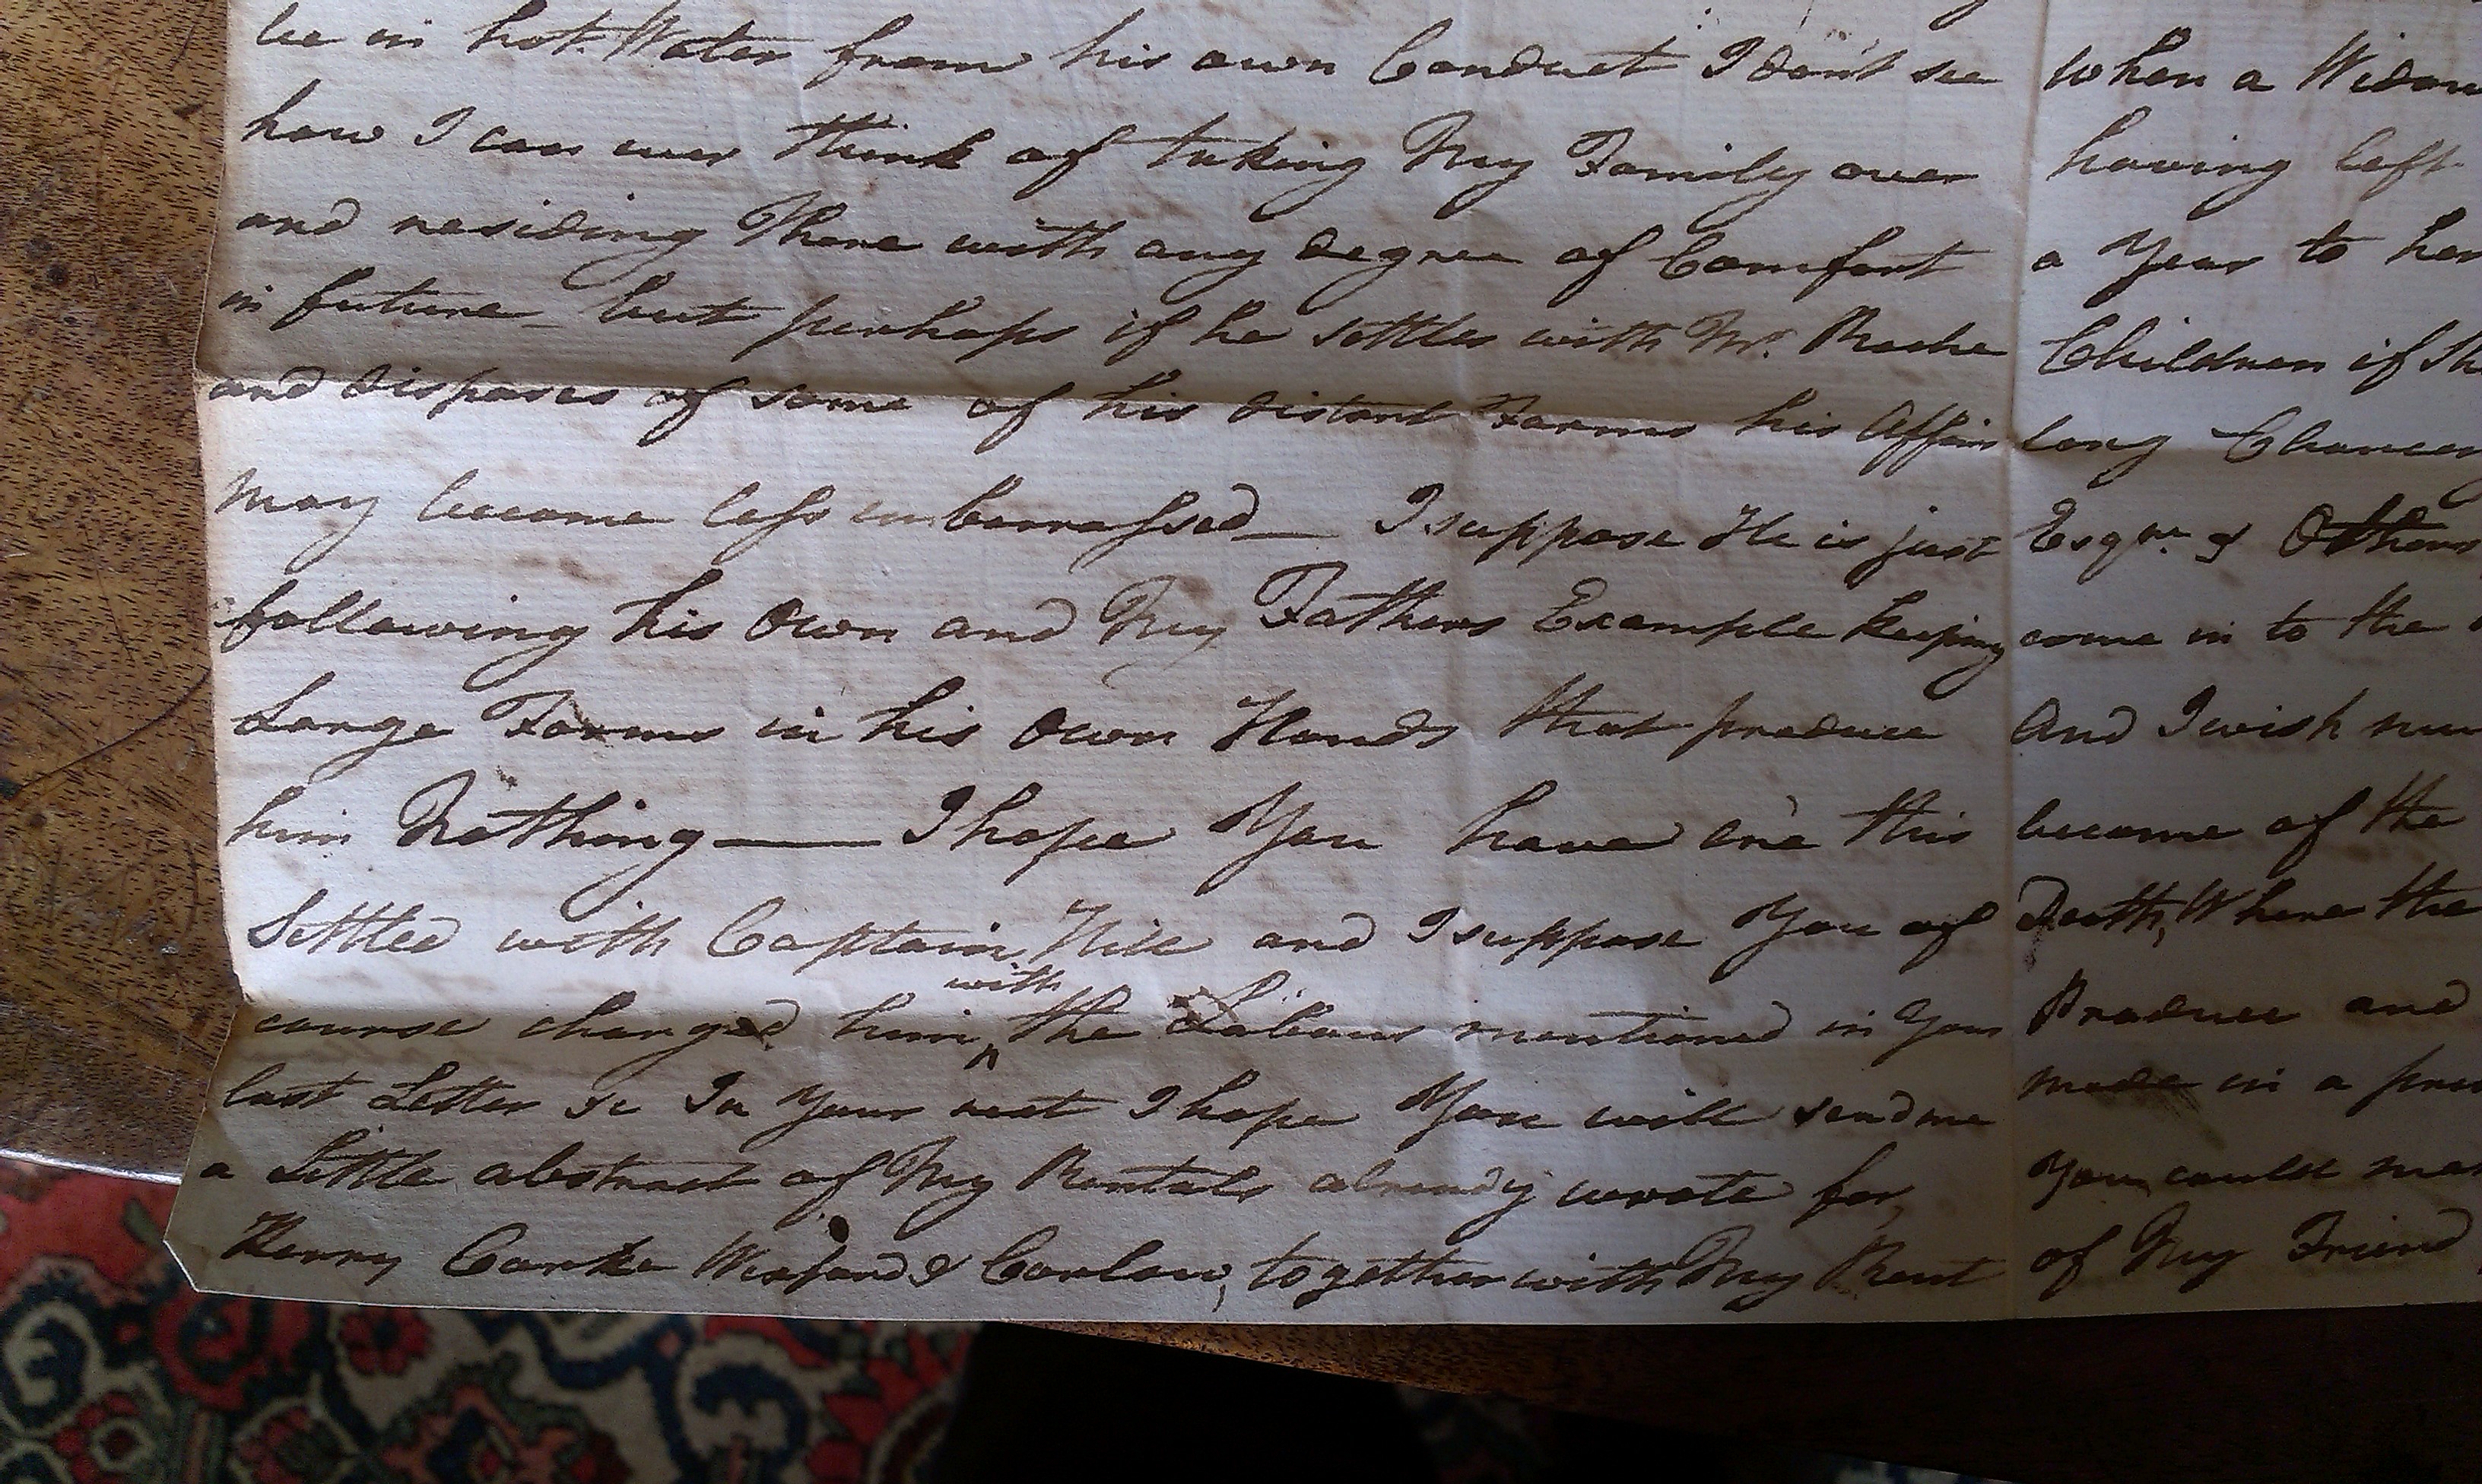 be in hot Water from his own Conduct I don't see
how I can ever think of taking My Family over
and residing There with any degree of Comfort
in future - but perhaps if he settles with Mr. Roche
and disposes of some of his distant Farms his Affairs
may become less embarrassed — I suppose He is just
following his Own and My Fathers Example keeping
Large Farms in his Own Hands that produce
him Nothing — I hope You have ere this
Settled with Captain and I suppose You of
with
course charged him the Labour mentioned in Your
last Letter &c In Your next I hope You will send me
a Little abstract of My Rentals already wrote for,
Kerry Corke Wexford & Carlow, together with My Rent
When a Widow
having left
a Year to her
Children if
long
Esqre. & Others
come in to the
And I wish
become of the
Death, Where the
Produce and
made in a
You could
of My Friend